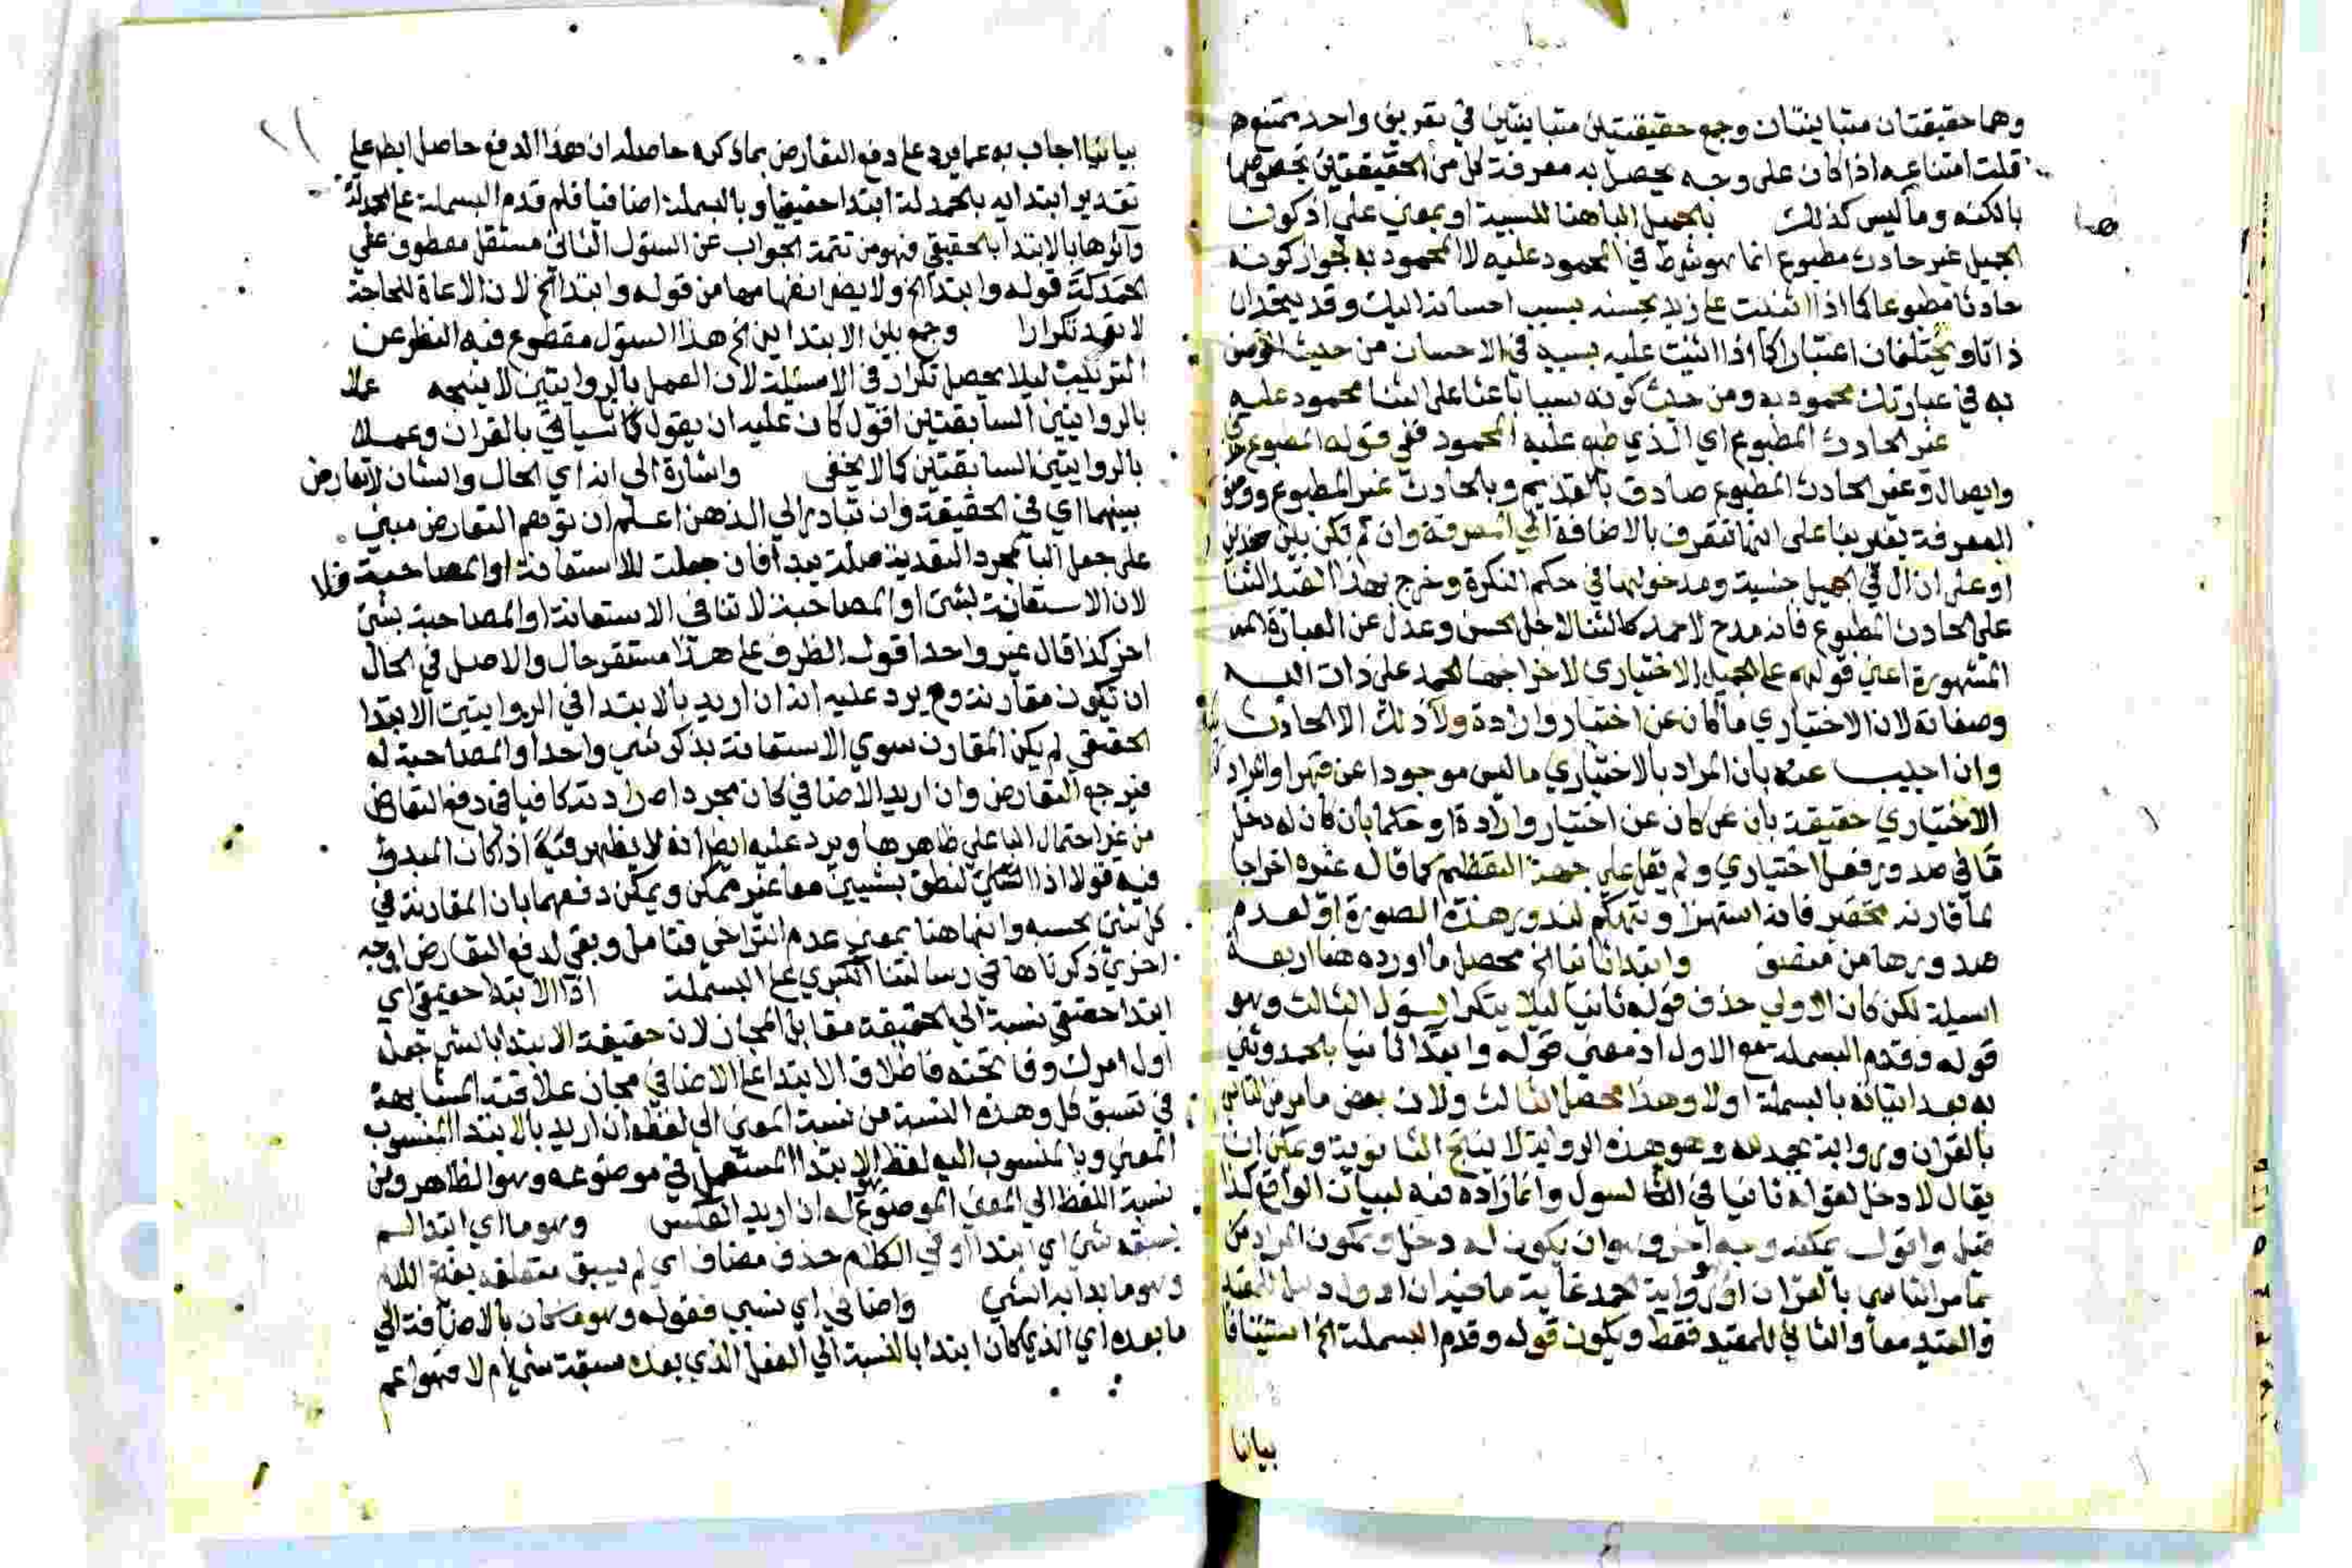 وهما حقيقتان متباينتان وجمع حقيقتين متباينتين في تعريف واحد ممتنع
قلت امتناعه اذا كان على وجه يحصل به معرفة كل من الحقيقتين بخصوصها
بالكنه وما ليس كذلك بالجميل الباهنا للسببية او بمعني علي اذ كون
الجميل غير حادث مطبوع انما هو شرط في المحمود عليه لا المحمود به لجواز كونه
حادثا مطبوعا كما اذا اثنيت على زيد بحسنه بسبب احسانه اليك وقد يتحدان
ذاتا ويختلفان اعتبارا كما اذا اثنيت عليه بسبب في الاحسان من حيث
به في عبارتك محمود به ومن حيث كونه سببا باعثا على الثنا محمود عليه
غير الحادث المطبوع اي الذي طبع عليه المحمود ففي قوله المطبوع
وايصال وغير الحادث المطبوع صادق بالقديم وبالحادث غير المطبوع
المعرفة بغير بنا على انها تتعرف بالاضافة الي المعرفة وان لم تكن بين ضدين
او على ان ال في الجميل جنسية ومدخولها في حكم النكرة وخرج بهذا القيد الثنا
على الحادث المطبوع فانه مدح لا حمد كالثنا لاجل الحسن وعدل عن العبارة
المشهورة اعني قولهم على الجميل الاختياري لاخراجها الحمد على ذات الله
وصفاته لان الاختياري ما كان عن اختيار وارادة ولا ذلك الا الحادث
وان اجيب عنه بان المراد بالاختياري ما ليس موجودا عن قهر او المراد
الاختياري حقيقة بان كان عن اختيار وارادة او حكما بان كان له دخل
ما في صدور فعل اختياري ولم يقل على جهة التعظيم كما قال غيره اخراجا
لما قارنه تحقير فانه استهزا وتهكم لندور هذه الصورة او لعدم
صدورها من وابتدا ثانيا الخ محصل ما اورده هنا اربعة
اسيلة لكن كان الاولي حذف قوله ثانيا ليلا يتكرر السول الثالث وهو
قوله وقدم البسملة مع الاول اذ معني قوله وابتدا ثانيا بالحمد
به بعد اتيانه بالبسملة اولا وهذا محصل الثالث ولان بعض ما مر من التاسي
بالقران ورواية بحمد لله وهو هذه الرواية لا ينتج الثانوية ويمكن ان
يقال لا دخل لقوله ثانيا في السول وانما زاده فيه لبيان الواقع كذا
قيل واقول يمكنه وجه اخر وهو ان يكون له دخل ويكون المراد من
ما مر التاسي بالقران او رواية الحمد غاية ما فيه ان الاول
والقيد معا والثاني للمقيد فقط ويكون قوله وقدم البسملة الخ استينافا
بيانيا
بيانيا اجاب به عما يرد على دفع التعارض بما ذكره حاصله ان هذا الدفع حاصل ايضا علي
تقدير ابتدايه بالحمدلة ابتدا حقيقيا وبالبسملة اضافيا فلم قدم البسملة على الحمدلة
وآثرها بالابتدا الحقيقي فهو من تتمة الجواب عن السول الثاني مستقل معطوف علي
قوله وابتدا الخ ولا يضر انفهامها من قوله وابتدا الخ لان الاعادة للحاجة
لا يعد تكرارا وجمع بين الابتداين الخ هذا السول مقطوع فيه النظر عن
الترتيب ليلا يحصل تكرار في الاسيلة لان العمل بالروايتين لا ينتجه عملا
بالروايتين السابقتين اقول كان عليه ان يقول كما سياتي بالقران وعملا
بالروايتين السابقتين كما لا يخفي واشارة الي انه اي الحال والشان لا تعارض
بينهما اي في الحقيقة وان تبادر الي الذهن اعلم ان توهم التعارض مبني
على جعل البا لمجرد التعدية صلة يبدا فان جعلت للاستعانة او المصاحبة فلا
لان الاستعانة بشي او المصاحبة لا تنافي الاستعانة او المصاحبة بشي
اخر كذا قال غير واحد اقول الظرف على هذا مستقر حال والاصل في الحال
ان تكون مقارنة وح يرد عليه انه ان اريد بالابتدا في الروايتين الابتدا
الحقيقي لم يكن المقارن سوي الاستعانة بذكر شي واحد او المصاحبة له
فيرجع التعارض وان اريد الاضافي كان مجرد ارادته كافيا في دفع التعارض
من غير احتمال البا على ظاهرها ويرد عليه ايضا انه لا يظهر فيه اذا كان المبدو
فيه قولا اذ النطق بشيين معا غير ممكن ويمكن دفعهما بان المقارنة في
كل شي بحسبه وانها هنا بمعني عدم التراخي فتامل وبقي لدفع التعارض اوجه
اخري ذكرناها في رسالتنا الكبري على البسملة اذ الابتدا حقيقي اي
ابتدا حقيقي نسبة الي الحقيقة مقابل المجاز لان حقيقة الابتدا بالشي جعله
اول امرك وفاتحته فاطلاق الابتدا على الاضافي مجاز علاقته المشابهة
في تسبق كل وهذه النسبة من نسبة المعني الي لفظه ان اريد بالابتدا المنسوب
المعني وبالمنسوب اليه لفظ الابتدا المستعمل في موضوعه وهو الظاهر ومن
نسبة اللفظ الي المعني الموضوع له ان اريد العكس وهو ما اي ابتدا لم
يسبقه شي اي ابتدا او في الكلام حذف مضاف اي لم يسبق متعلقه بفتح اللام
وهو ما بدا به الشي واضافي اي نسبي فقوله وهو ما كان بالاضافة الي
ما بعده اي الذي كان ابتدا بالنسبة الي الفعل الذي بعده سبقه شي ام لا فهو اعم